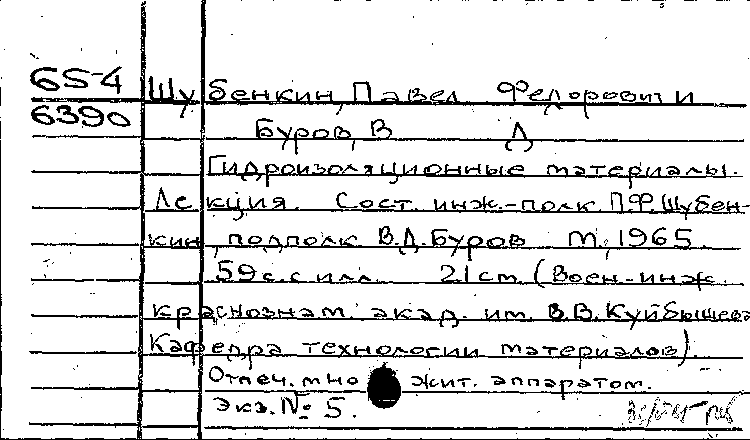 65-4 Шубенкин, Павел Федорович и
6390 Буров, В Д
Гидроизоляционные материалы.
Лекция. Сост. инж.-полк. П.Ф. Шубен-
кин, подполк В.Д. Буров М, 1965.
59 с. с илл. 21 см (Воен.-инж.
краснознам. акад. им. В.В. Куйбышева
Кафедра технологии материалов).
Отпеч. мно жит. аппаратом.
Экз. № 5.